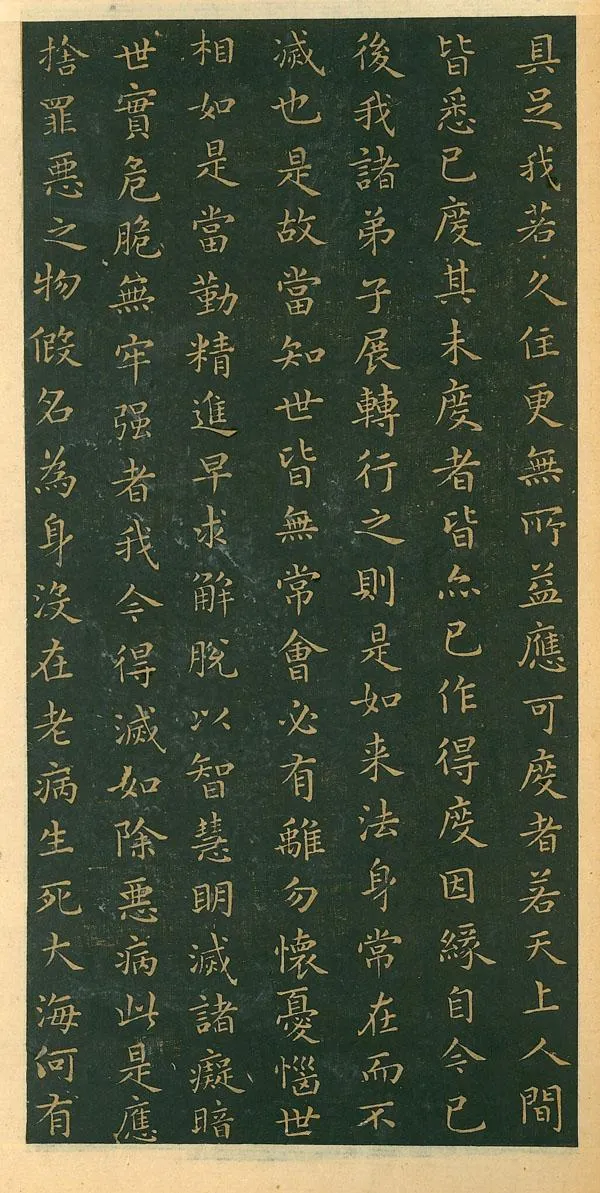 具足我若久住更無所益應可度者若天上人間
皆悉已度其未度者皆亦已作得度因緣自今已
後我諸弟子展轉行之則是如来法身常在而不
滅也是故當知世皆無常會必有離勿懷憂惱世
相如是當勤精進早求解脫以智慧明滅諸癡暗
世實危脆無牢强者我今得滅如除惡病此是應
捨罪惡之物假名為身没在老病生死大海何有